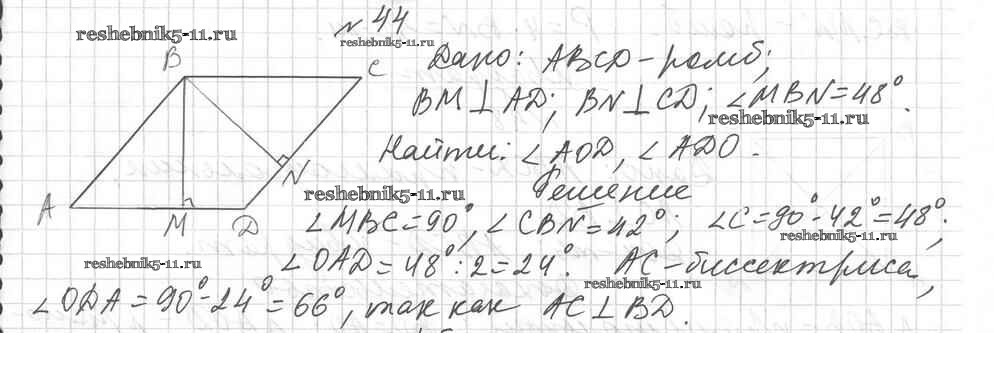 № 44
reshebnik5-11.ru
reshebnik5-11.ru
B
C
Дано: ABCD - ромб;
BM ⊥ AD; BN ⊥ CD; ∠MBN = 48°.
reshebnik5-11.ru
Найти: ∠AOD, ∠ADO.
N
reshebnik5-11.ru
Решение
A
M
D
∠MBC = 90°, ∠CBN = 42°; ∠C = 90° - 42° = 48°;
reshebnik5-11.ru
reshebnik5-11.ru
∠OAD = 48° : 2 = 24°. AC - биссектриса,
reshebnik5-11.ru
∠ODA = 90° - 24° = 66°, так как AC ⊥ BD.